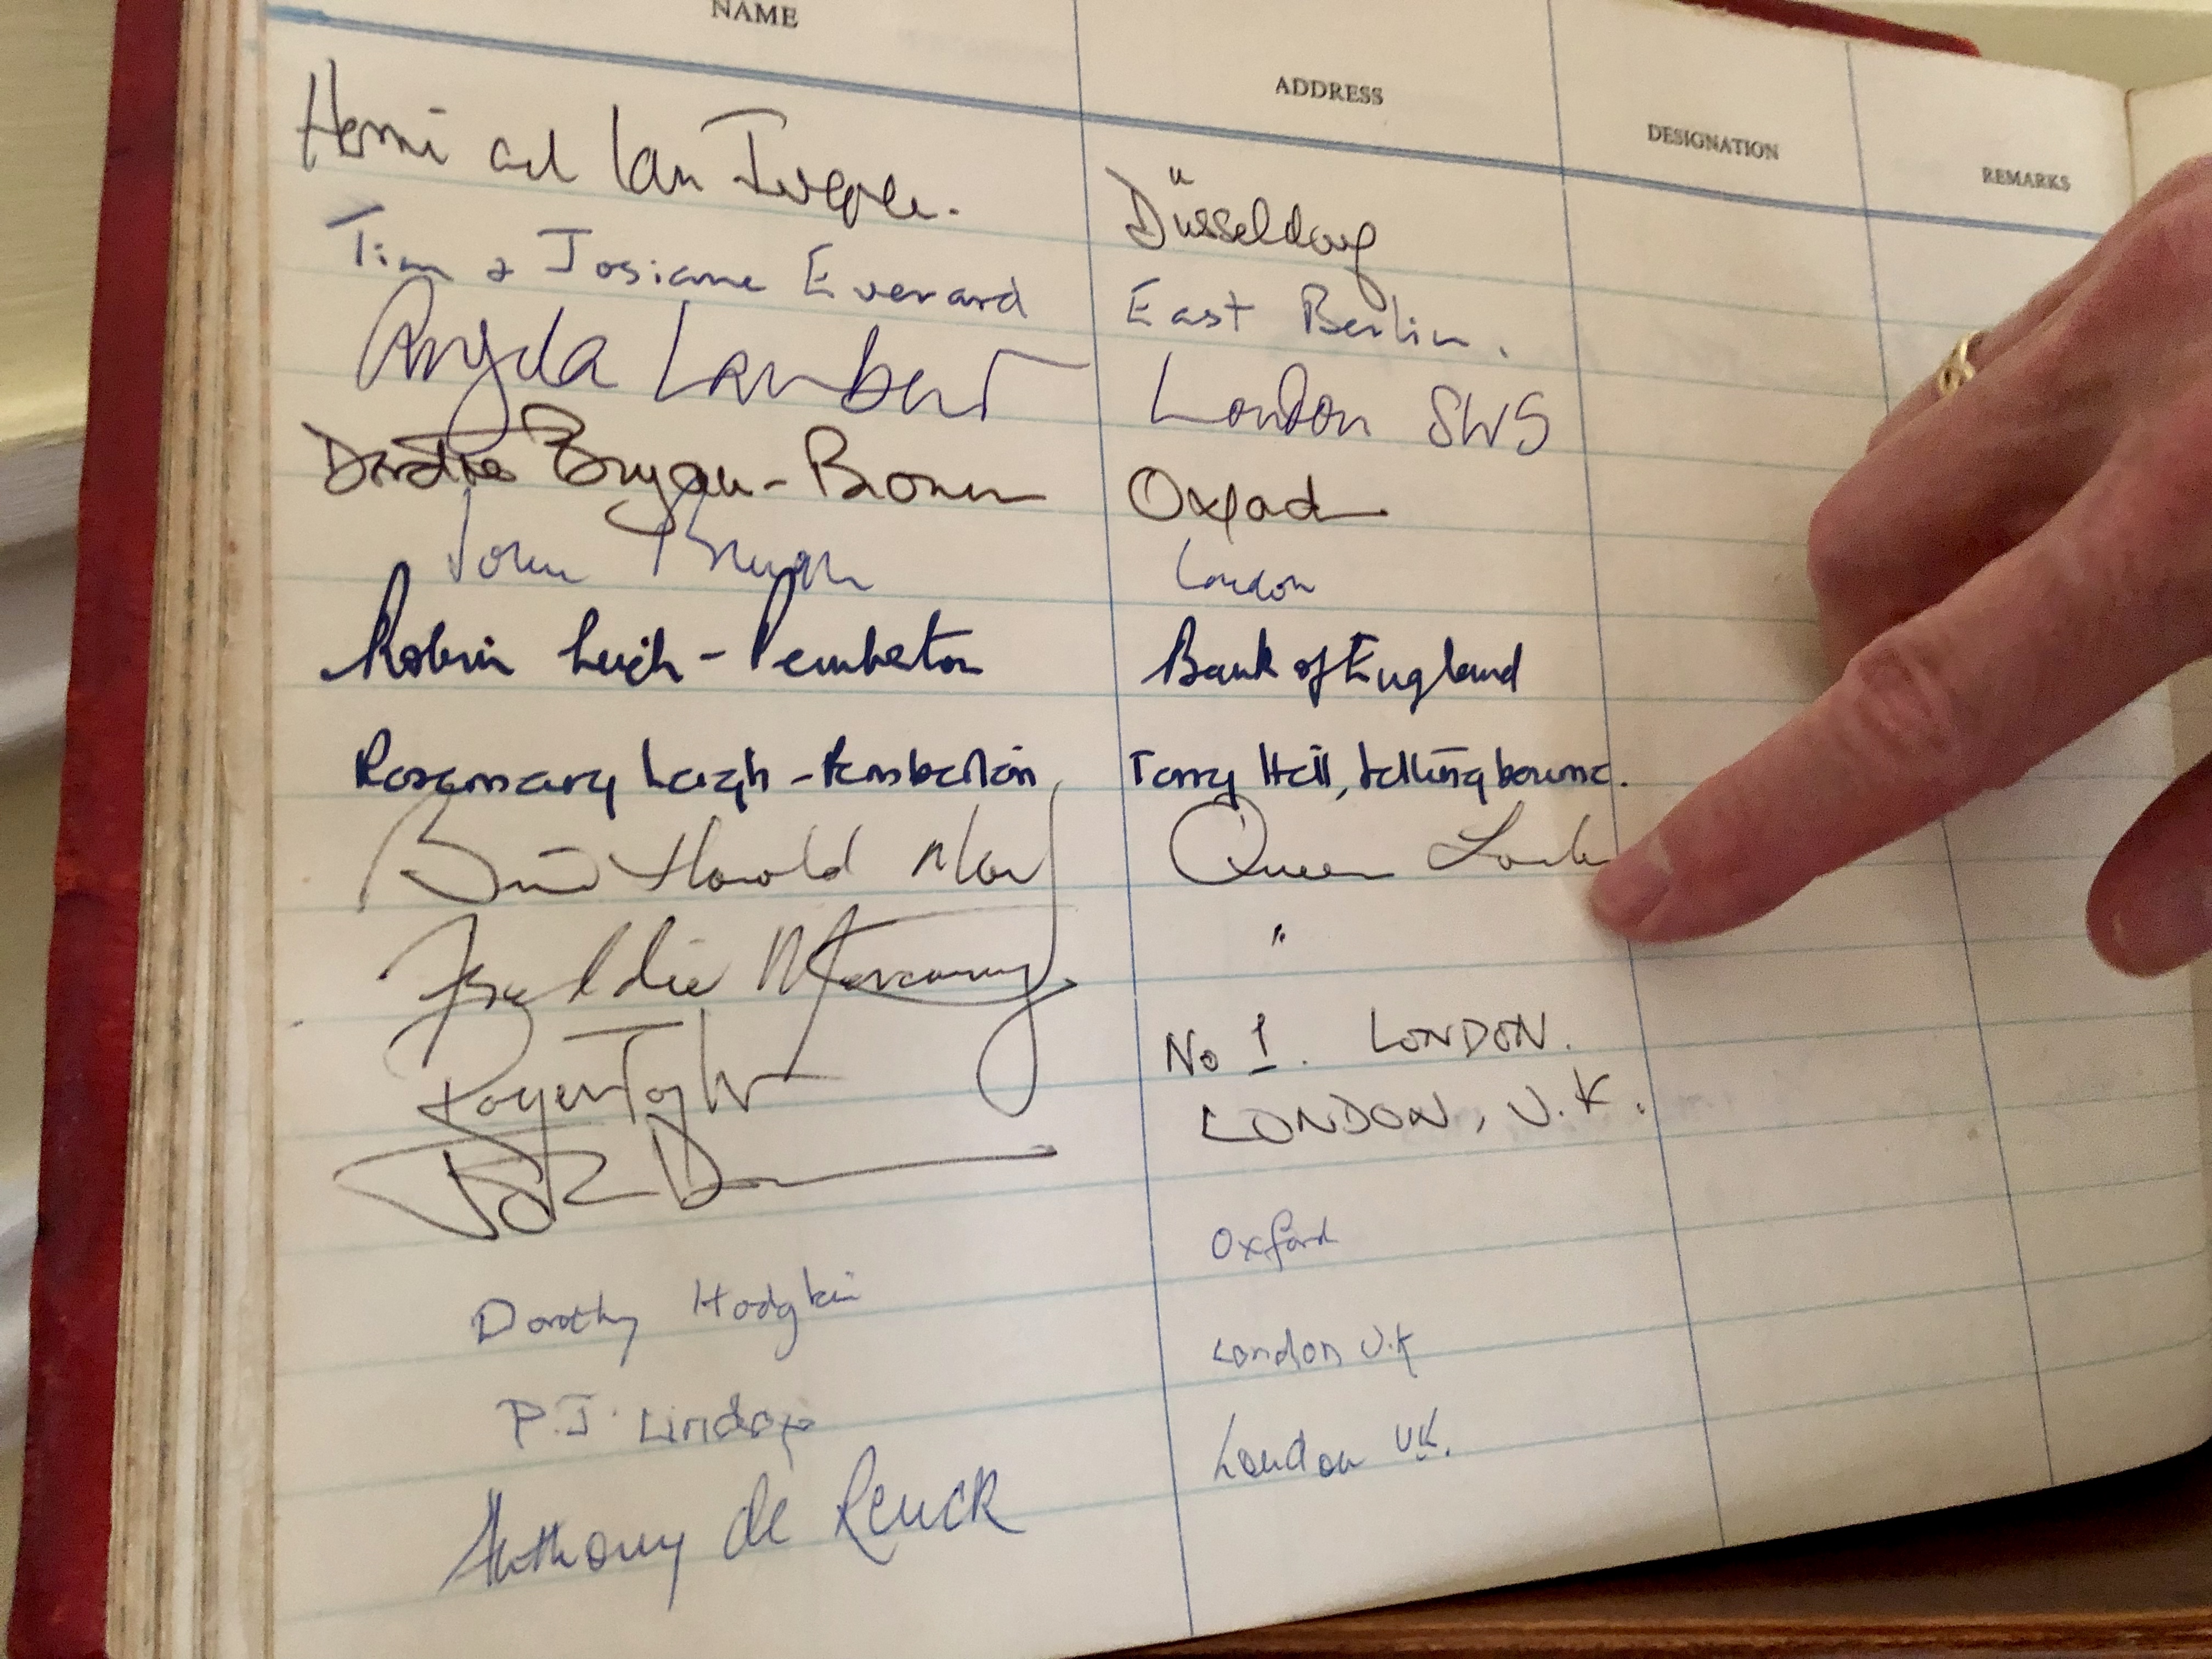 NAME ADDRESS DESIGNATION REMARKS
Ian Düsseldorf
Tim & Josiane Everard East Berlin.
Angela Lambert London SW5
Bryan-Brown Oxford
John London
Robin Leigh-Pemberton Bank of England
Rosemary Leigh-Pemberton Torry Hill, Sittingbourne.
Brian Harold May Queen
Freddie Mercury "
Roger Taylor No 1. LONDON.
John D LONDON, U.K.
Dorothy Hodgkin Oxford
P.J. Lindop London U.K
Anthony de Reuck London UK.